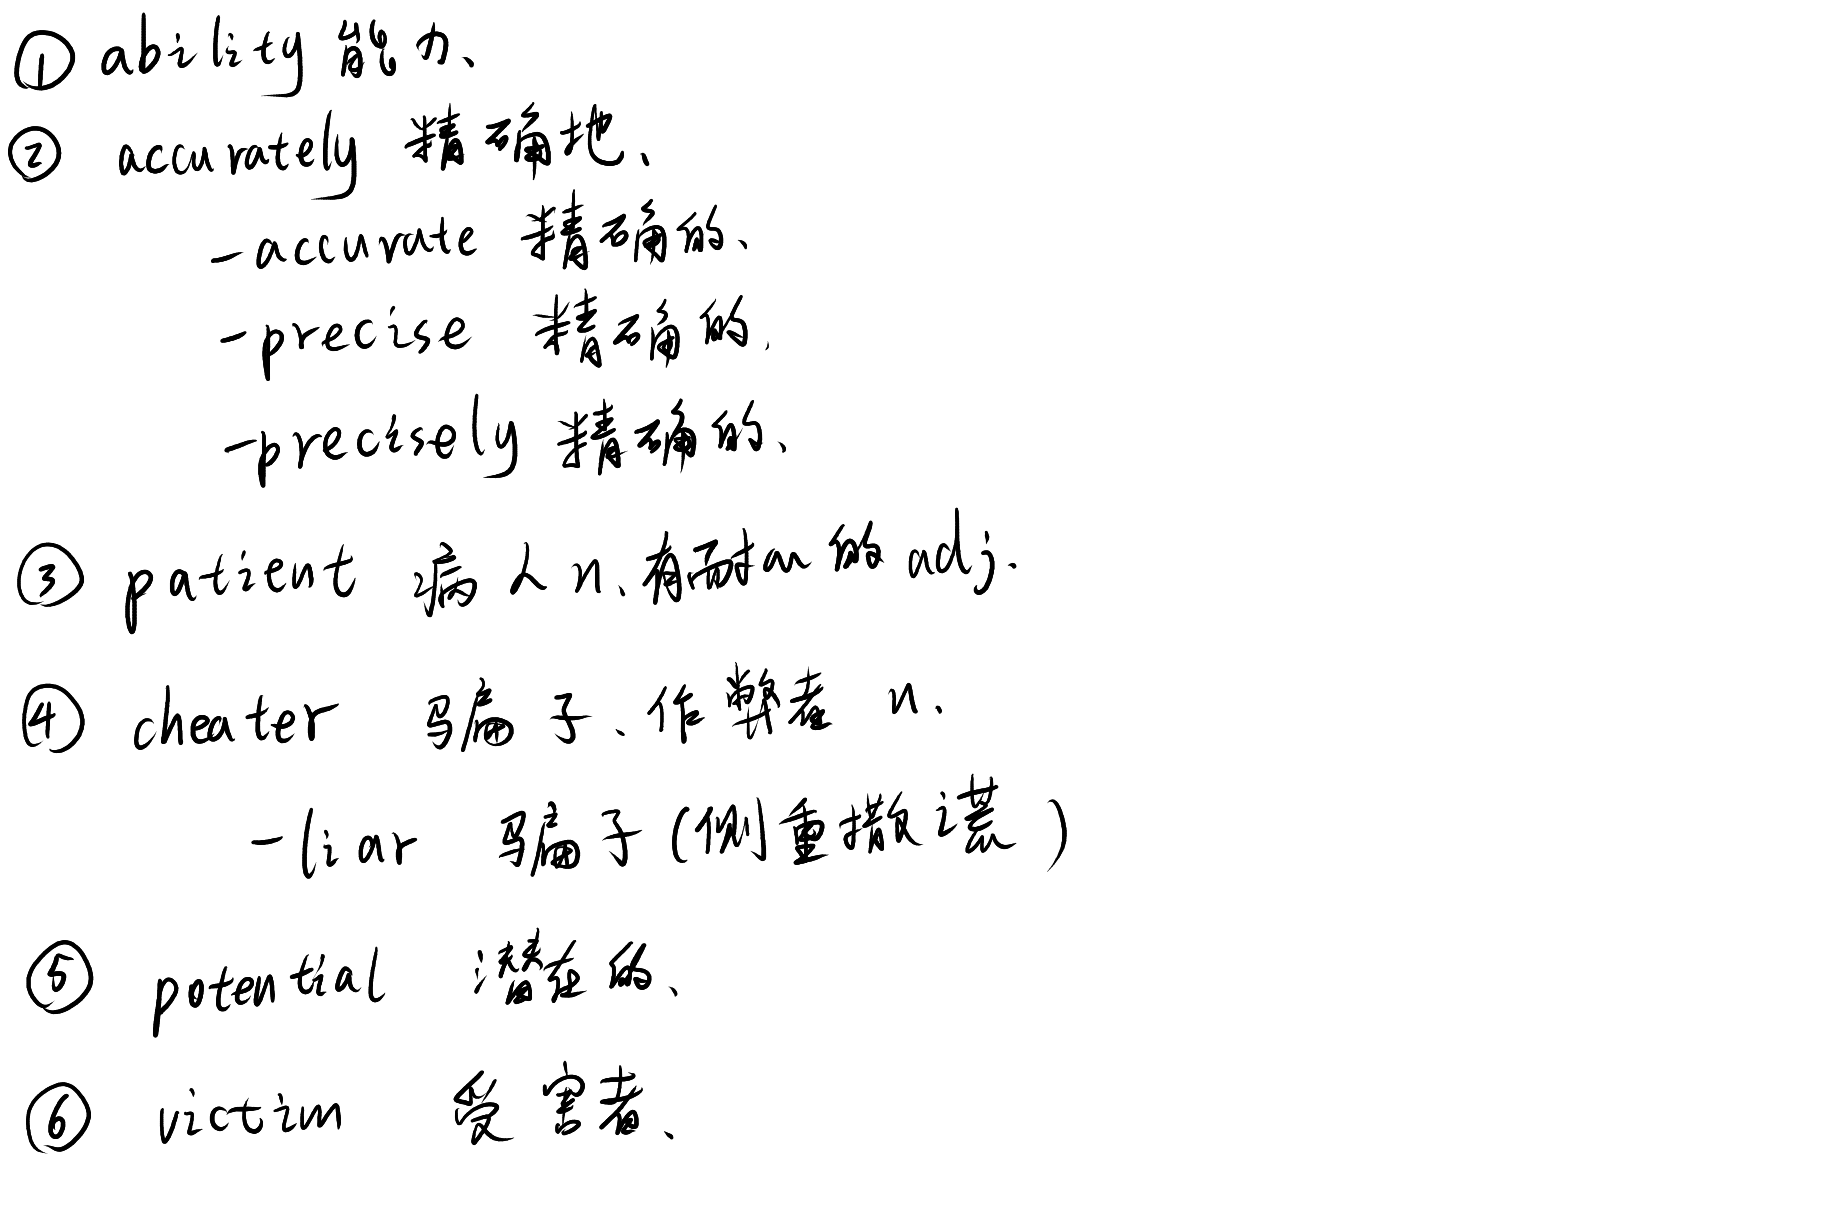 ① ability 能力、
② accurately 精确地、
-accurate 精确的、
-precise 精确的.
-precisely 精确的、
③ patient 病人 n、有耐心的 adj.
④ cheater 骗子、作弊者 n.
-liar 骗子(侧重撒谎)
⑤ potential 潜在的、
⑥ victim 受害者、